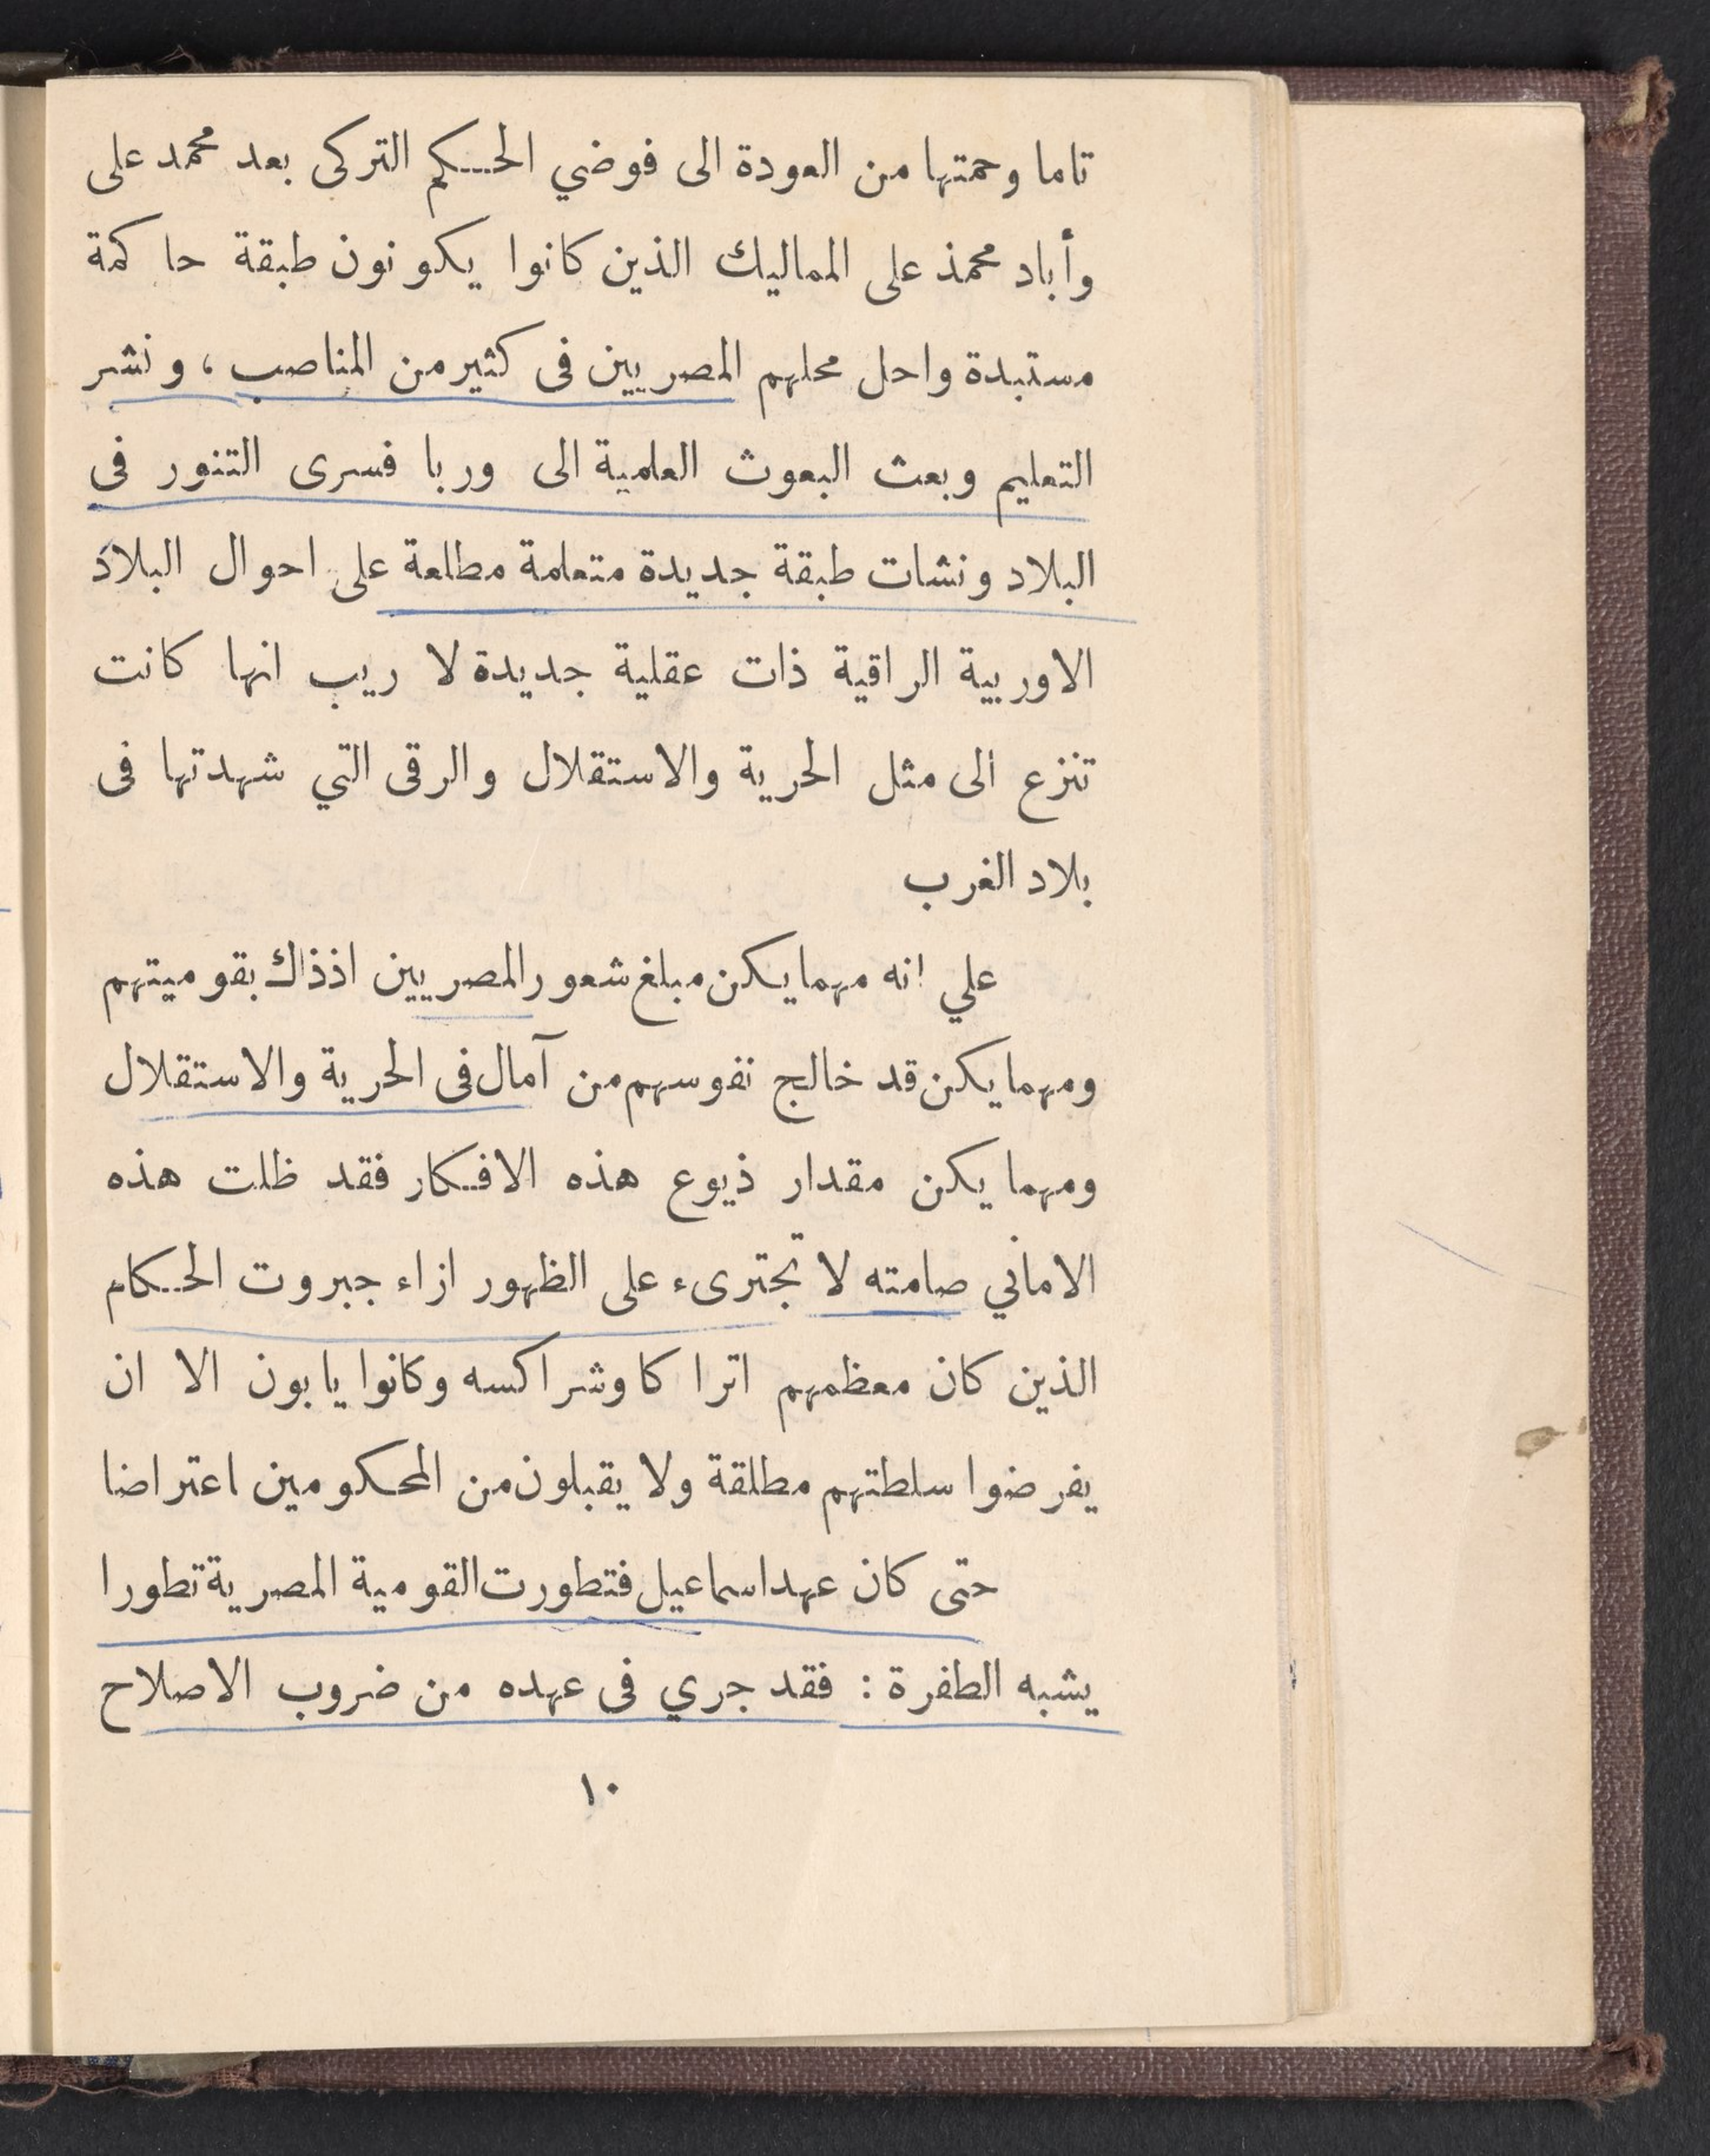 تاما وحمتها من العودة الى فوضي الحكم التركى بعد محمد على
وأباد محمذ على المماليك الذين كانوا يكونون طبقة حاكمة
مستبدة واحل محلهم المصريين فى كثير من المناصب ، ونشر
التعليم وبعث البعوث العلمية الى وربا فسرى التنور فى
البلاد ونشات طبقة جديدة متعلمة مطلعة على احوال البلاد
الاوربية الراقية ذات عقلية جديدة لا ريب انها كانت
تنزع الى مثل الحرية والاستقلال والرقى التي شهدتها فى
بلاد الغرب
علي انه مهما يكن مبلغ شعور المصريين اذذاك بقوميتهم
ومهما يكن قد خالج نفوسهم من آمال فى الحرية والاستقلال
ومهما يكن مقدار ذيوع هذه الافكار فقد ظلت هذه
الاماني صامته لا تجترىء على الظهور ازاء جبروت الحكام
الذين كان معظمهم اتراكا وشراكسه وكانوا يابون الا ان
يفرضوا سلطتهم مطلقة ولا يقبلون من المحكومين اعتراضا
حتى كان عهد اسماعيل فتطورت القومية المصرية تطورا
يشبه الطفرة : فقد جري فى عهده من ضروب الاصلاح
١٠